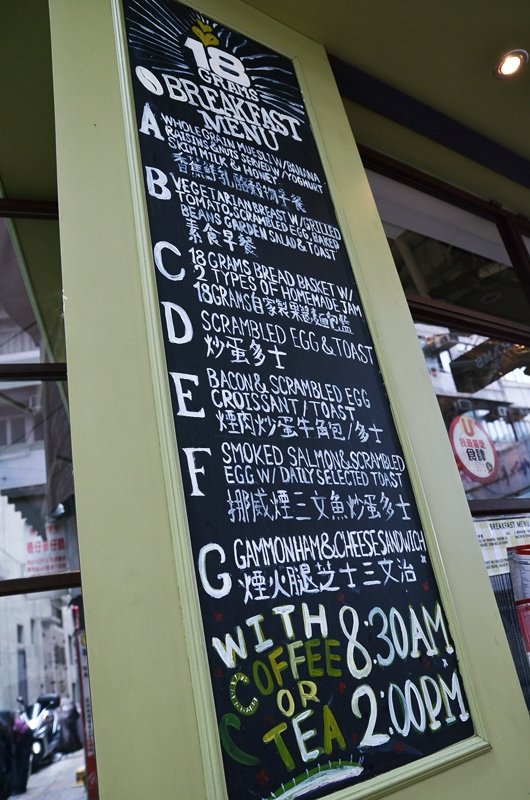 18
GRAMS
BREAKFAST
MENU
A
WHOLEGRAIN MUESLI W/ BANANA
RAISINS & NUT SERVED W/
SKIM MILK & HONEY YOGHURT
香蕉鮮乳酪穀物早餐
B
VEGETARIAN BREAST W/ GRILLED
TOMATO, SCRAMBLED EGG, BAKED
BEANS, GARDEN SALAD & TOAST
素食早餐
C
18 GRAMS BREAD BASKET W/
2 TYPES OF HOMEMADE JAM
18GRAMS自家製果醬麵包籃
D
SCRAMBLED EGG & TOAST
炒蛋多士
E
BACON & SCRAMBLED EGG
CROISSANT / TOAST
煙肉炒蛋牛角包/多士
F
SMOKED SALMON & SCRAMBLED
EGG W/ DAILY SELECTED TOAST
挪威煙三文魚炒蛋多士
G
GAMMONHAM & CHEESE SANDWICH
煙火腿芝士三文治
WITH
COFFEE
OR
TEA
8:30AM
2:00PM
BREAKFAST MENU